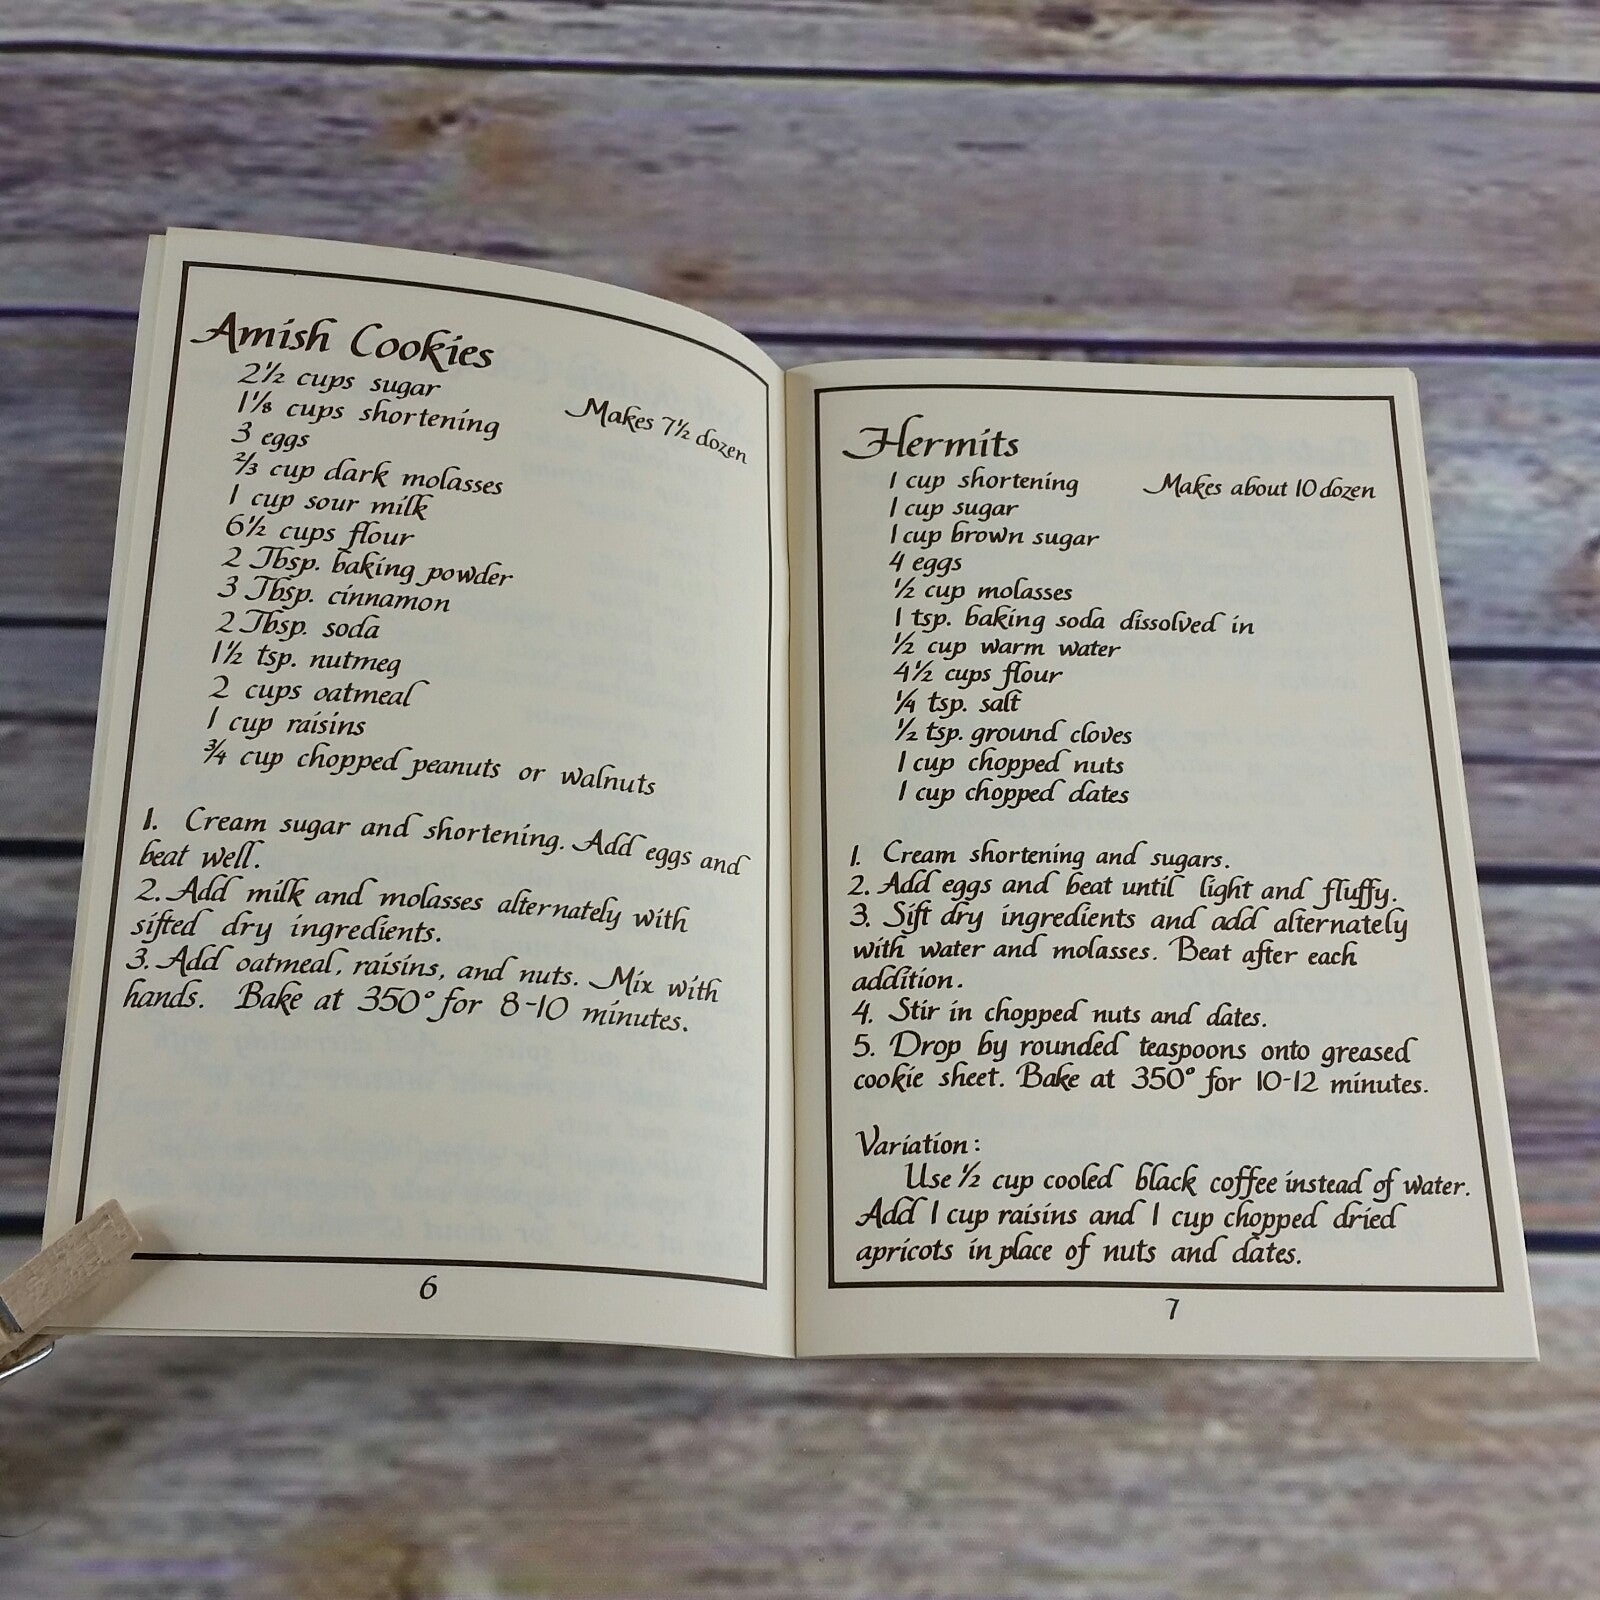 Amish Cookies
2½ cups sugar
1⅛ cups shortening
Makes 7½ dozen
3 eggs
⅔ cup dark molasses
1 cup sour milk
6½ cups flour
2 Tbsp. baking powder
3 Tbsp. cinnamon
2 Tbsp. soda
1½ tsp. nutmeg
2 cups oatmeal
1 cup raisins
¾ cup chopped peanuts or walnuts
1. Cream sugar and shortening. Add eggs and
beat well.
2. Add milk and molasses alternately with
sifted dry ingredients.
3. Add oatmeal, raisins, and nuts. Mix with
hands. Bake at 350° for 8-10 minutes.
6
Hermits
1 cup shortening
Makes about 10 dozen
1 cup sugar
1 cup brown sugar
4 eggs
½ cup molasses
1 tsp. baking soda dissolved in
½ cup warm water
4½ cups flour
¼ tsp. salt
½ tsp. ground cloves
1 cup chopped nuts
1 cup chopped dates
1. Cream shortening and sugars.
2. Add eggs and beat until light and fluffy.
3. Sift dry ingredients and add alternately
with water and molasses. Beat after each
addition.
4. Stir in chopped nuts and dates.
5. Drop by rounded teaspoons onto greased
cookie sheet. Bake at 350° for 10-12 minutes.
Variation:
Use ½ cup cooled black coffee instead of water.
Add 1 cup raisins and 1 cup chopped dried
apricots in place of nuts and dates.
7